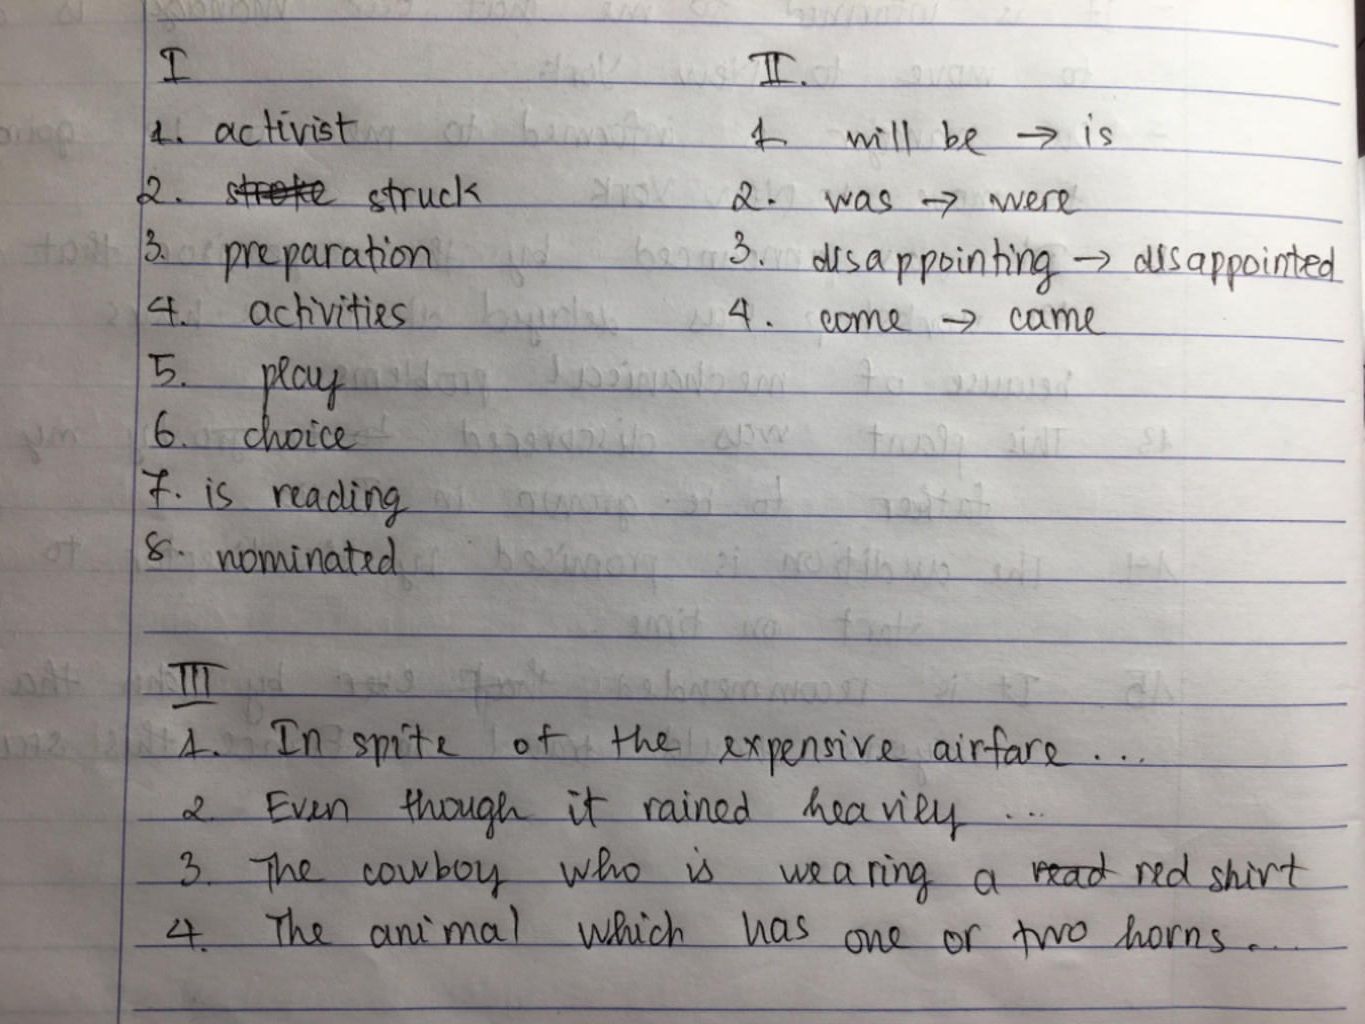 I
1. activist
2. struck
3. preparation
4. activities
5. play
6. choice
7. is reading
8. nominated
II.
1 will be → is
2. was → were
3. disappointing → disappointed
4. come → came
III
1. In spite of the expensive airfare ...
2. Even though it rained heavily ...
3. The cowboy who is wearing a red shirt
4. The animal which has one or two horns ...